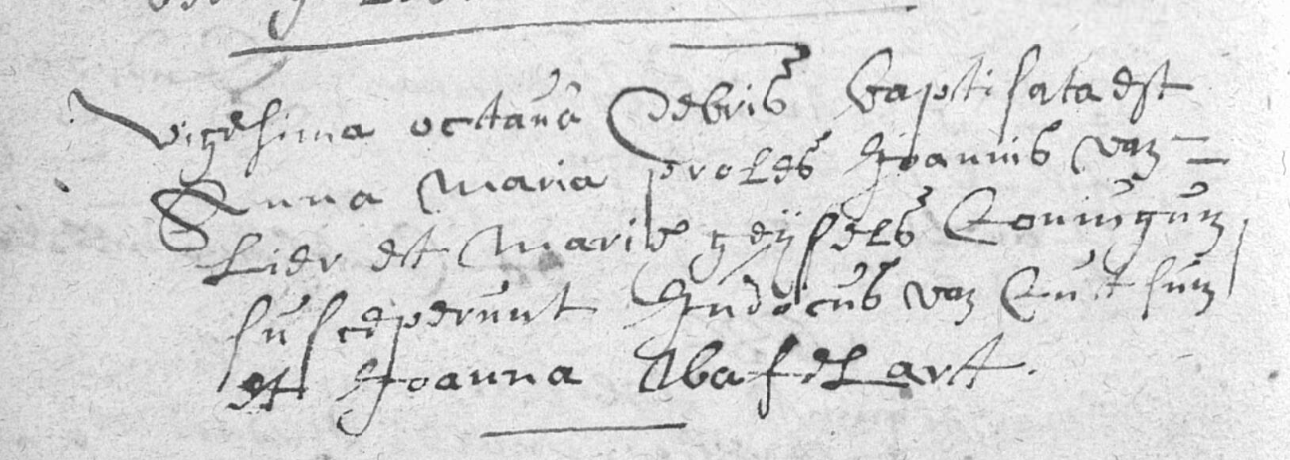 Vigesima octava Xebris baptisata est
Anna Maria proles Joannis van
Lier et Marie geijsels Coniugum,
susceperunt Judocus van
et Joanna